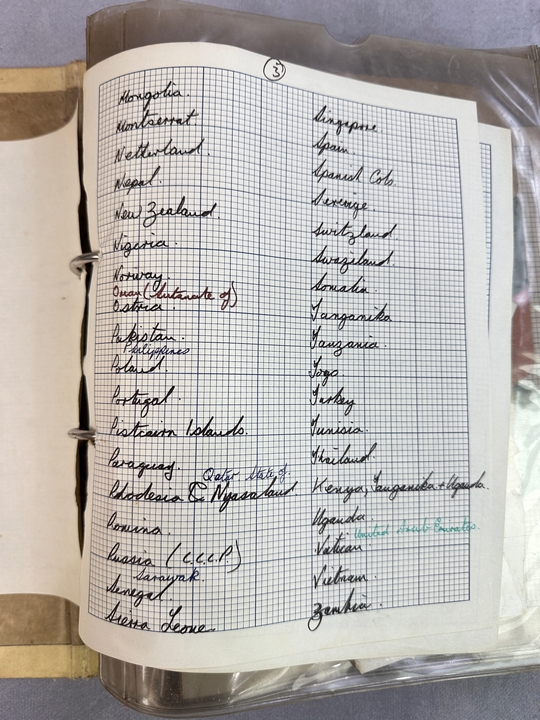 3
Mongolia.
Montserrat
Netherland.
Nepal.
New Zealand.
Nigeria.
Norway.
Oman (Sutanate of)
Ostria.
Pakistan.
Philippines
Poland.
Portugal.
Pistcairn Islands.
Paraguay.
Qatar State of.
Rhodesia & Nyasaland.
Romina.
Russia (C.C.C.P.)
Sarayak.
Senegal.
Sierra Leone.
Singapore.
Spain.
Spanish Colo.
Sverige.
Switzland.
Swaziland.
Somalia.
Tanganika
Tanzania.
Togo.
Turkey
Tunisia.
Thailand.
Kenya, Tanganika + Uganda.
Uganda.
United Arab Emirates.
Vatican
Vietnam.
Zambia.